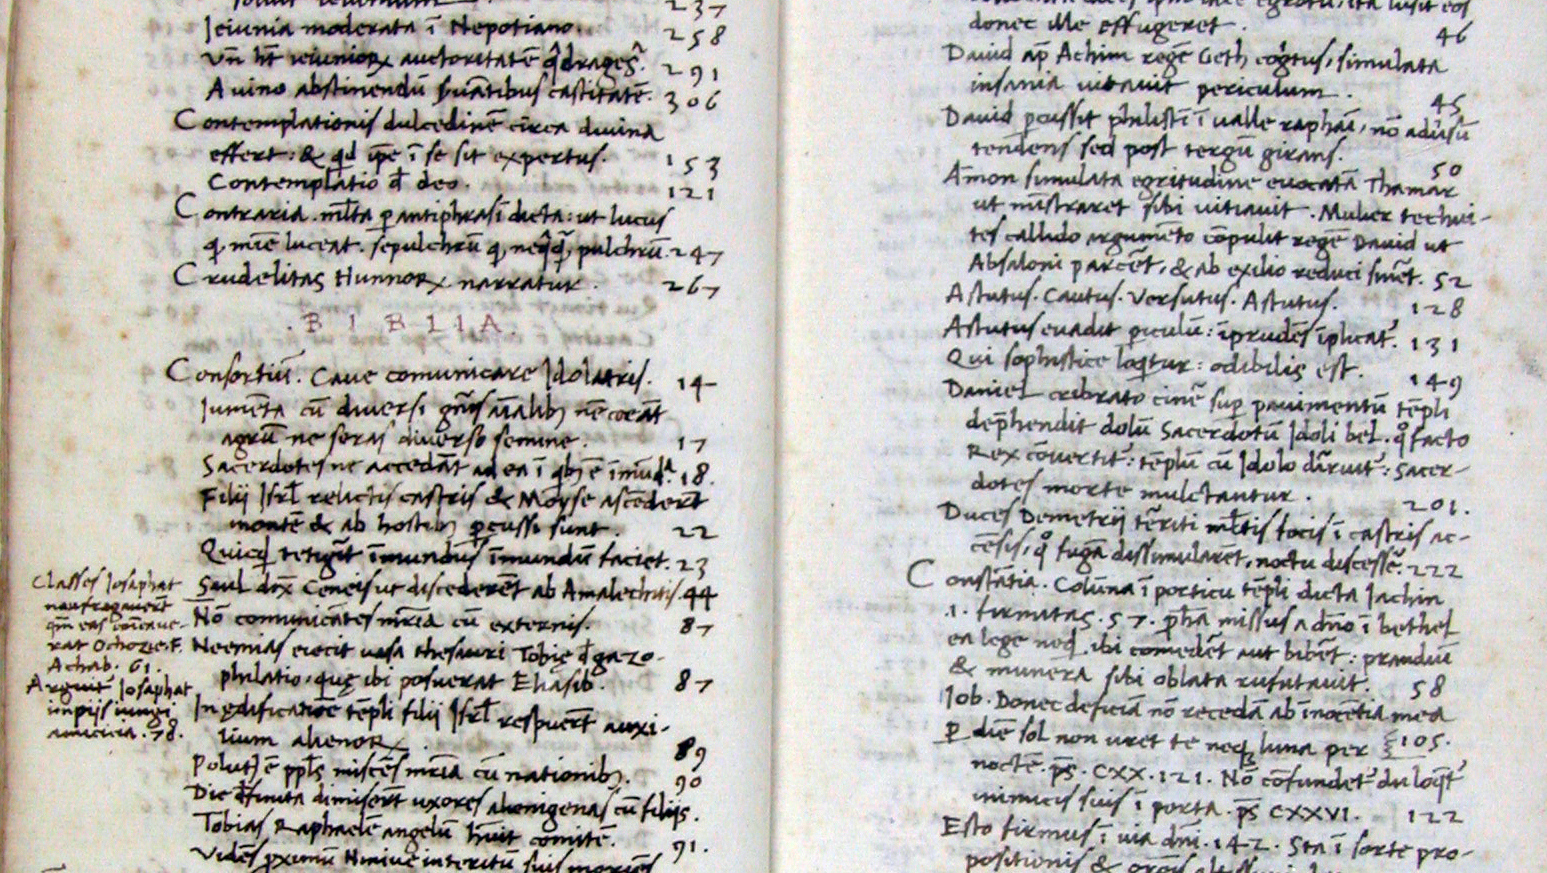 237
Ieiunia moderata ī Nepotiano. 258
Vn̄ hn̄t ieiunioꝝ auctoritatē q̄drages̄. 291
A uino abstinendū ẜuātibus castitatē. 306
Contemplationis dulcedinē circa diuina
effert: & qd ip̄e ī se sit expertus. 153
Contemplatio đ deo. 121
Contraria. ml̄ta ꝑ antiphrasī dicta: ut lucus
q, mīe luceat. sepulchrū q, neq̄q̄ pulchrū. 247
Crudelitas Hunnoꝝ narratur. 267
. B I B L I A .
Consortiū. Caue comunicare Idolatris. 14
Iumēta cū diuersi gn̄is aīalibꝫ nē coeāt
agrū ne seras diuerso semine. 17
Sacerdotes ne accedāt ad ea ī qbꝫ ē īmūd͞a. 18.
Filij Isrl̄ relictis castris & Moyse ascēderūt
montē & ab hostibꝫ ꝑcussi sunt. 22
Quicq̄ tetigīt īmundus īmundū faciet. 23
Saul dix̄ Ceneis ut discederēt ab Amalechitis. 44
Nō comunicātes mr̄ia cū externis. 87
Neemias eiecit uasa thesauri Tobię đ gazo-
philatio. quę ibi posuerat Eliasib. 87
In ędificatiōe tēpli filij Isrl̄ respuerūt auxi-
lium alienoꝝ. 89
Polut9 ē ppl̄s miscēs mr̄ia cū nationibꝫ. 90
Die d̄finita dimiserūt uxores alienigenas cū filijs.
Tobias Raphaelē angelū hūit comitē. 91.
Vidēs ꝓximū Niniue interitū suis moriēs
Classes Iosaphat
naufragauerūt
qm̄ eas cōicaue-
rat Ochozie. F.
Achab. 61.
Arguit Iosaphat
impijs iungi
amicicia. 78.
donec ille effugeret. 46
Dauid ap̄ Achim regē Geth coḡtus, simulata
insania uitauit periculum. 45
Dauid ꝑcussit philistī ī ualle raphaī, nō aduersū
tendens sed post tergū girans. 50
Amon simulata egritudine euocatā Thamar
ut mīstraret sibi uitiauit. Mulier techui-
tes callido argumēto cōpulit regē Dauid ut
Absaloni parceret, & ab exilio reduci sineret. 52
Astutus. Cautus. Versutus. Astutus. 128
Astutus euadit ꝑiculū: īprudēs īplicat̄. 131
Qui sophistice loqtur: odibilis est. 149
Daniel cribrato cinē suꝑ pauimentū tēpli
dep̄hendit dolū Sacerdotū Idoli bel. qͦ facto
Rex cōuertit̄: tēplū cū Idolo dīruit̄: sacer-
dotes morte mulctantur. 201.
Duces Demetrij tēriti ml̄tis focis ī castris ac-
cēsis, qͦ fugā dissimularēt, noctu discessēr. 222
Constātia. Colūna ī porticu tēpli dicta Iachin
.i. firmitas. 57. ꝓha missus a dn̄o ī bethel
ea lege neq, ibi comedēt aut bibēt: prandiū
& munera sibi oblata rufutauit. 58
Iob. Donec deficiā nō recedā ab īnocētia mea
ꝑ diē sol non uret te neqꝫ luna per 105.
noctē. ps̄. CXX. 121. Nō cōfundet̄ dū loqt̄
inimicis suis ī porta. ps̄ CXXVI. 122
Esto firmus ī uia dn̄i. 142. Sta ī sorte pro-